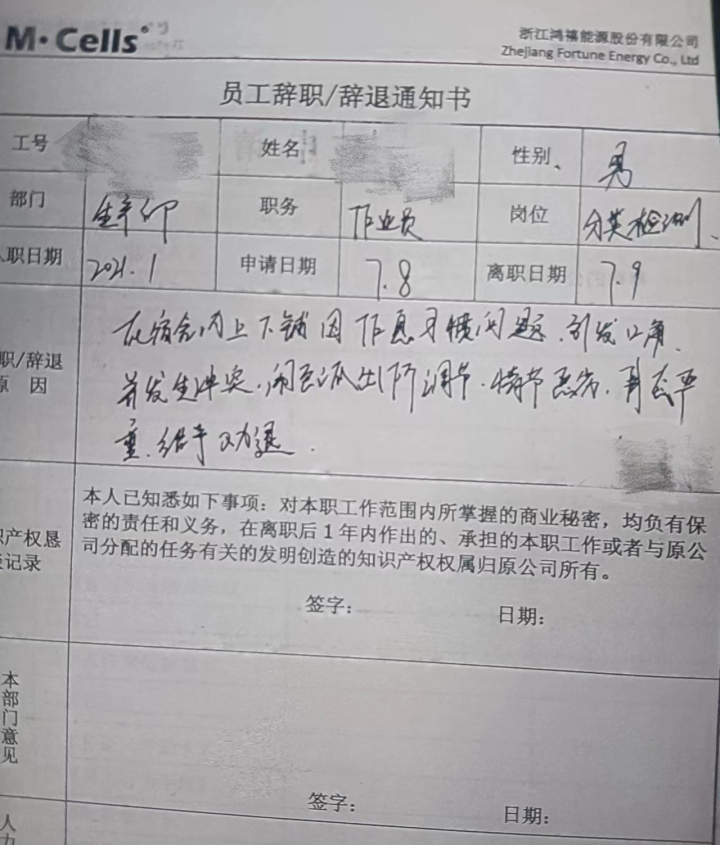 M·Cells
浙江鸿禧能源股份有限公司
Zhejiang Fortune Energy Co., Ltd
员工辞职/辞退通知书
工号 姓名 性别、 男
部门 生产部 职务 作业员 岗位 分类检测
职日期 2021.1 申请日期 7.8 离职日期 7.9
职/辞退
原 因
在宿舍内上下铺因作息习惯问题.引发口角.
并发生冲突.闹至派出所调节.情节恶劣.
重.给予劝退.
产权恳
记录
本人已知悉如下事项：对本职工作范围内所掌握的商业秘密，均负有保
密的责任和义务，在离职后1年内作出的、承担的本职工作或者与原公
司分配的任务有关的发明创造的知识产权权属归原公司所有。
签字： 日期：
本部门意见
签字： 日期：
人力